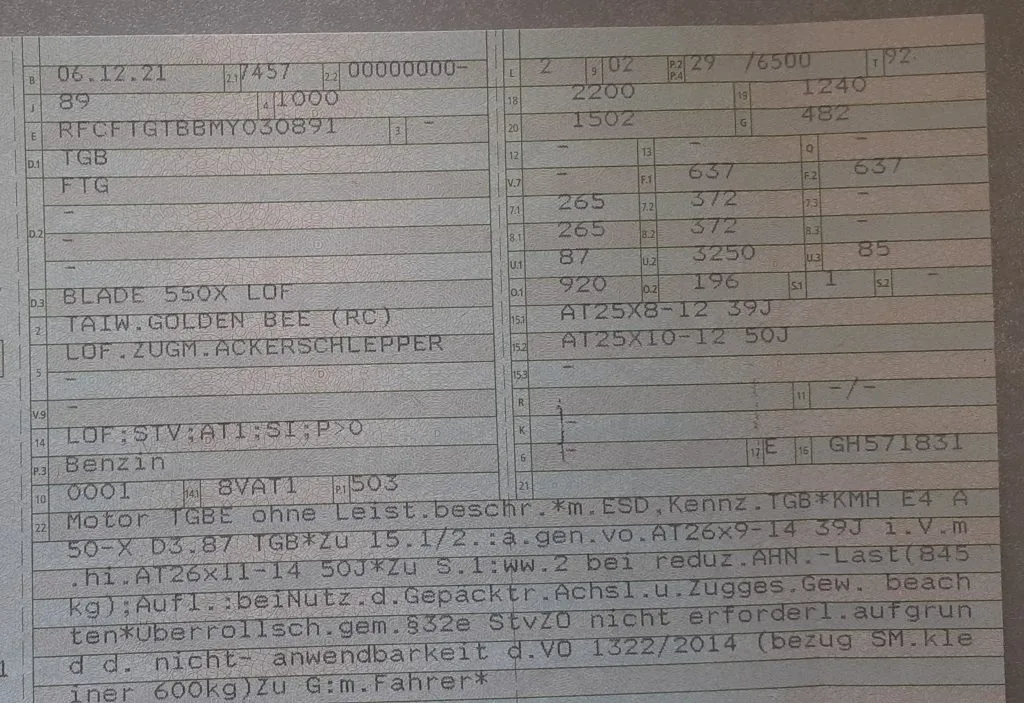 B 06.12.21 2.1 7457 2.2 00000000-
J 89 4 1000
E RFCFTGTBBMY030891 3 -
D.1 TGB
D.2 FTG
-
-
-
D.3 BLADE 550X LOF
2 TAIW.GOLDEN BEE (RC)
5 LOF.ZUGM.ACKERSCHLEPPER
-
V.9 -
14 LOF;STV;AT1;SI;P>0
P.3 Benzin
10 0001 14.1 8VAT1 P.1 503
L 2 9 02 P.2 P.4 29 /6500 T 92
18 2200 19 1240
20 1502 G 482
12 - 13 - Q -
V.7 - F.1 637 F.2 637
7.1 265 7.2 372 7.3 -
8.1 265 8.2 372 8.3 -
U.1 87 U.2 3250 U.3 85
O.1 920 O.2 196 S.1 1 S.2 -
15.1 AT25X8-12 39J
15.2 AT25X10-12 50J
15.3 -
R 11 -/-
K -
6 - 17 E 16 GH571831
21
22 Motor TGBE ohne Leist.beschr.*m.ESD,Kennz.TGB*KMH E4 A
50-X D3.87 TGB*Zu 15.1/2.:a.gen.vo.AT26x9-14 39J i.V.m
.hi.AT26x11-14 50J*Zu S.1:ww.2 bei reduz.AHN.-Last(845
kg);Aufl.:beiNutz.d.Gepäcktr.Achsl.u.Zugges.Gew. beach
ten*Überrollsch.gem.§32e StVZO nicht erforderl.aufgrun
d d. nicht- anwendbarkeit d.VO 1322/2014 (bezug SM.kle
iner 600kg)Zu G:m.Fahrer*